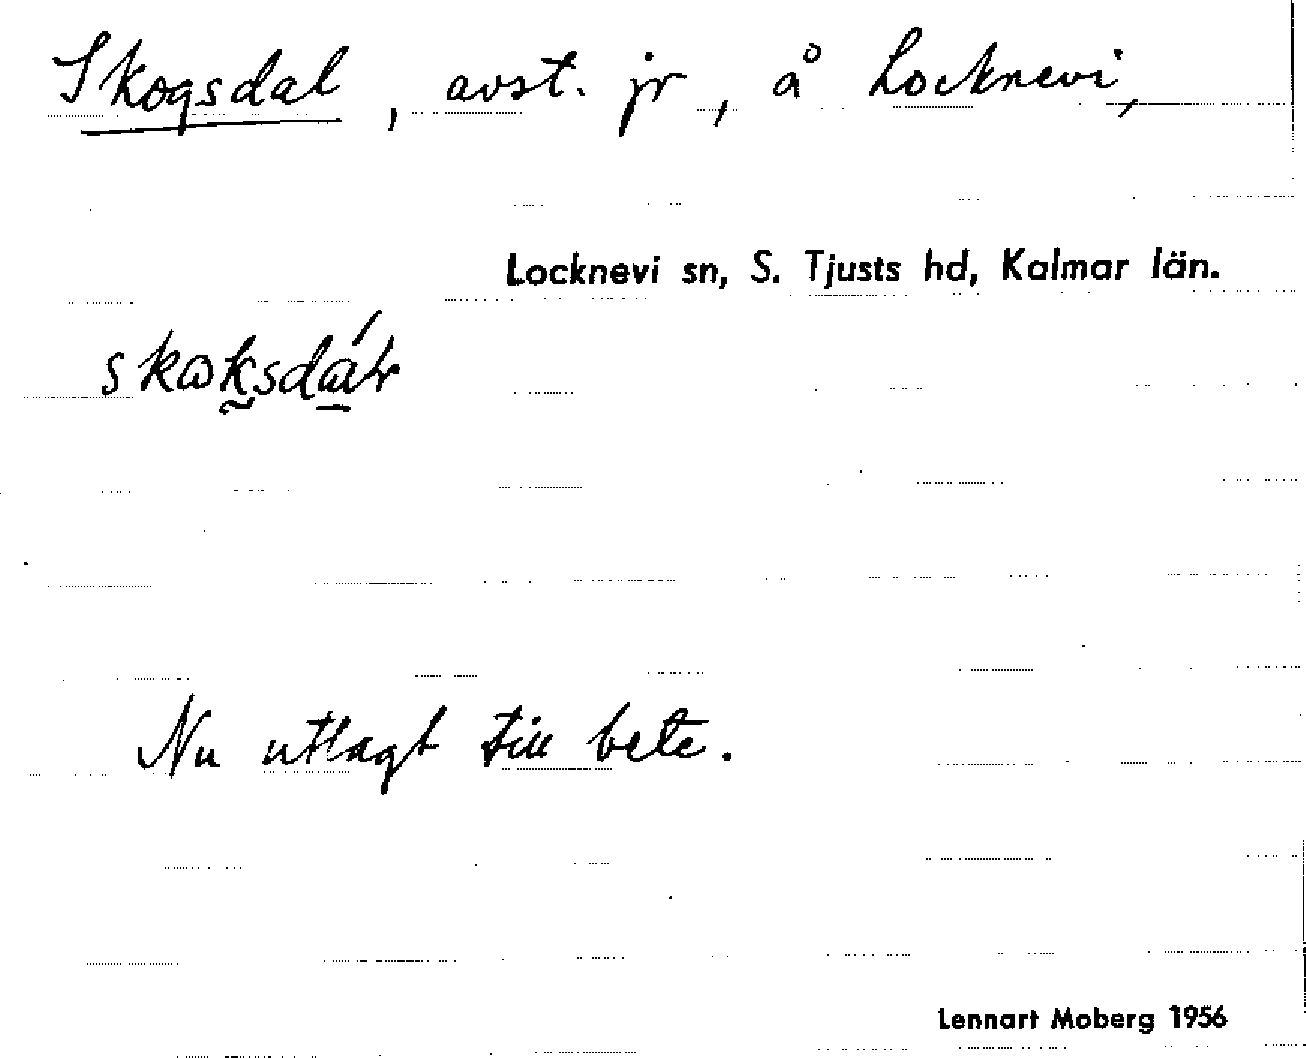 Skogsdal, avst. jr, å Locknevi,
Locknevi sn, S. Tjusts hd, Kalmar län.
Nu utlagt till bete.
Lennart Moberg 1956